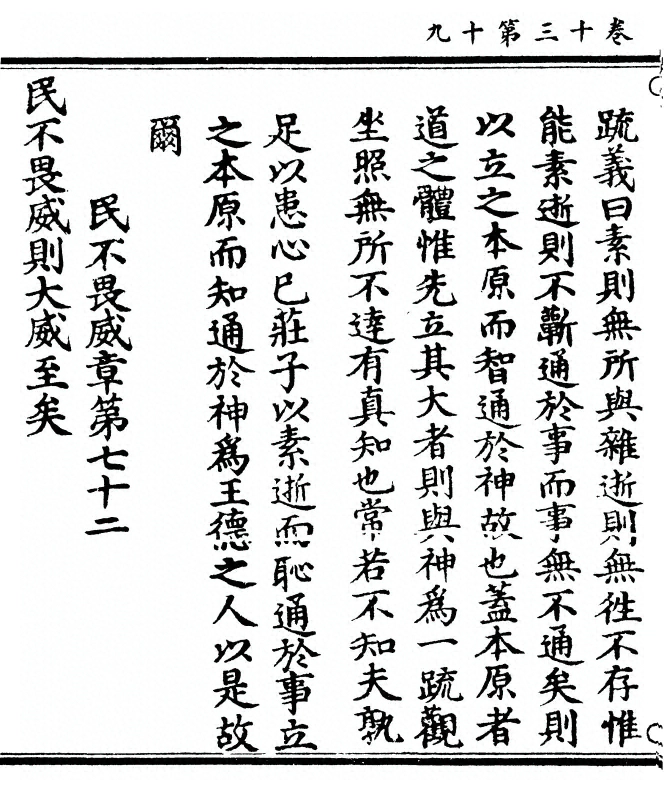 卷十三第十九
疏義曰素則無所與雜逝則無徃不存惟
能素逝則不蘄通於事而事無不通矣則
以立之本原而智通於神故也蓋本原者
道之體惟先立其大者則與神爲一疏觀
坐照無所不達有真知也常若不知夫孰
足以患心巳莊子以素逝而恥通於事立
之本原而知通於神爲王德之人以是故
爾
民不畏威章第七十二
民不畏威則大威至矣